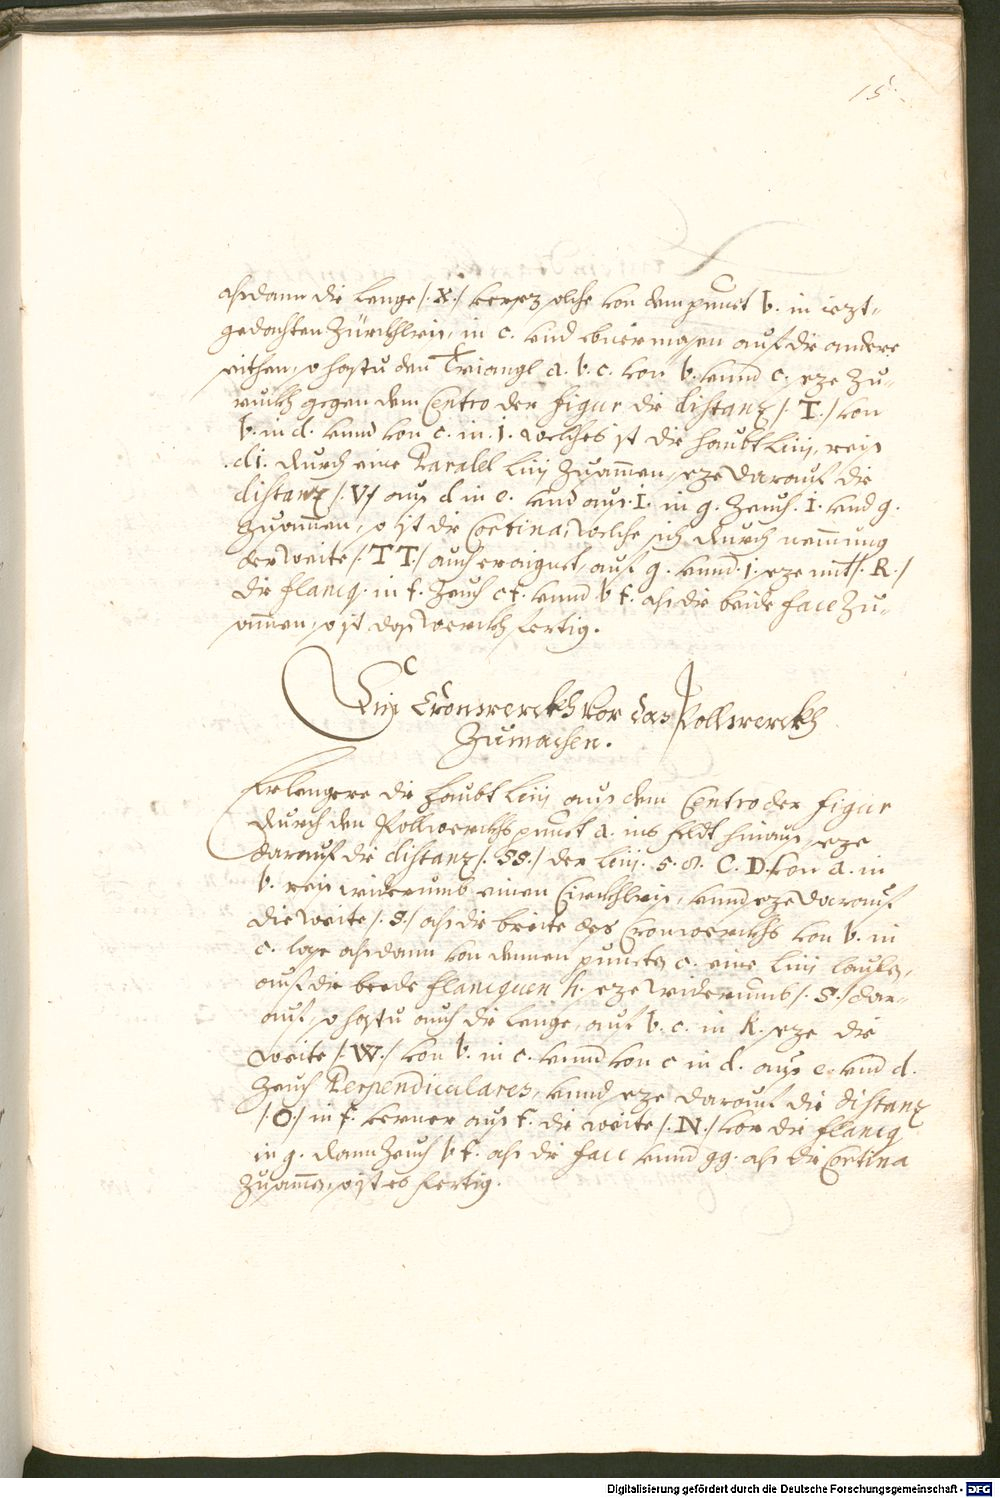 15.
alsdann die lenge /. X ./ versez solche von dem punct b. in iezt-
gedachten Zürckhlriß, in c. vnd ebnermasen auf die andere
seithen, so hastu den Triangl a. b. c. von b. vnnd c. seze Zu-
ruckh gegen dem Centro der figur die distanz /. T ./ von
b. in d. vnnd von c. in .i. welches ist die haubt Linj, reiß
.di. durch eine Paralel Linj Zusamen, seze darauf die
distanz /. V ./ auß d in e. vnd auß .i. in g. Zeuch .i. vnd g.
Zusammen, so ist die Cortina, welche sich durch nemmung
der weite /. T T ./ auch eraignet, auf g. vnnd .i. seze mit /. R ./
die flancq. in f. Zeuch cf. vnnd b f. als die beide face Zu-
samen, so ist das werckh fertig.
Ein Cronwerckh vor das Bollwerckh
Zumachen.
Erlengere die haubt Linj auß dem Centro der figur
durch den Pollwerckhs punct a. ins feldt hinauß, seze
darauf die distanz /. SS ./ der Linj. 5. 8. C. D. von a. in
b. reiß widerumb einen Circkhlriß, vnnd seze darauf
die weite /. S ./ als die breite des Cronwerckhs von b. in
c. laße alsdann von dennen puncten c. eine Linj laufen,
auf die beede flancquen h. seze widerumb /. S ./ dar-
auf, so hastu auch die lenge, auf b. c. in k. seze die
weite /. W ./ von b. in c. vnnd von c in d. auß e. vnd d.
Zeuch Perpendiculares, vnnd seze darauf die distanz
/. O ./ in f. verner auß f. die weite /. N ./ vor die flancq
in g. dann Zeuch b f. als die face vnnd gg. als die Cortina
Zusamen, so ist es fertig.
Digitalisierung gefördert durch die Deutsche Forschungsgemeinschaft - DFG